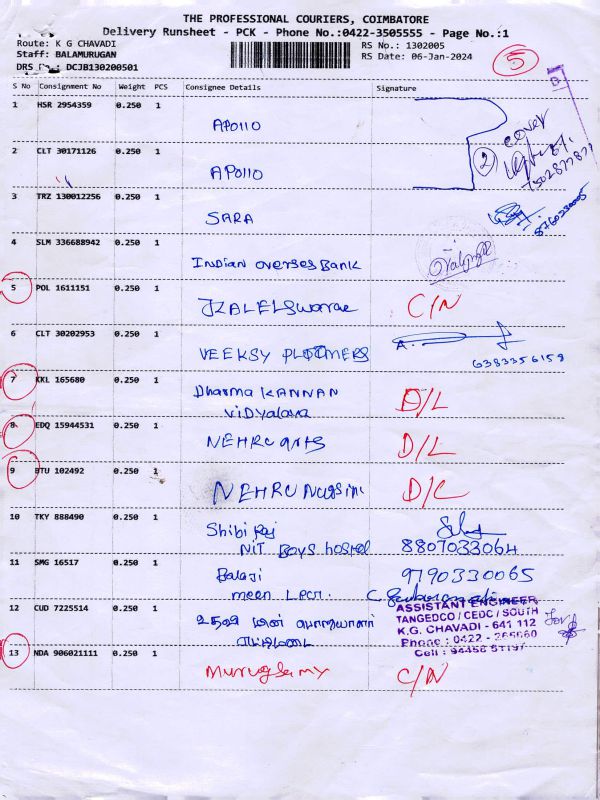 THE PROFESSIONAL COURIERS, COIMBATORE
Delivery Runsheet - PCK - Phone No.:0422-3505555 - Page No.:1
Route: K G CHAVADI
Staff: BALAMURUGAN
RS No.: 1302005
RS Date: 06-Jan-2024
5
DRS No.: DCJB130200501
S No Consignment No Weight PCS Consignee Details Signature
1 HSR 2954359 0.250 1 APOllO
cover
2
2 CLT 30171126 0.250 1 APOllO
3 TRZ 130012256 0.250 1 SARA
8760230005
4 SLM 336688942 0.250 1 Indian overses Bank
5 POL 1611151 0.250 1 C/N
6 CLT 30202953 0.250 1 VEEKSY
6383356159
7 KKL 165680 0.250 1 Dharma KANNAN D/L
vidyalaya
8 EDQ 15944531 0.250 1 NEHRU arts D/L
9 BTU 102492 0.250 1 NEHRU Nursini D/L
10 TKY 888490 0.250 1 Shibi Raj
NIT Boys hostel 8807033064
11 SMG 16517 0.250 1 Balaji 9790330065
12 CUD 7225514 0.250 1 உதவி மின் பொறியாளர்
ASSISTANT ENGINEER
TANGEDCO / CEDC / SOUTH
K.G. CHAVADI - 641 112
Phone : 0422 -
Cell : 94458 51197
13 NDA 906021111 0.250 1 Murugsamy C/N